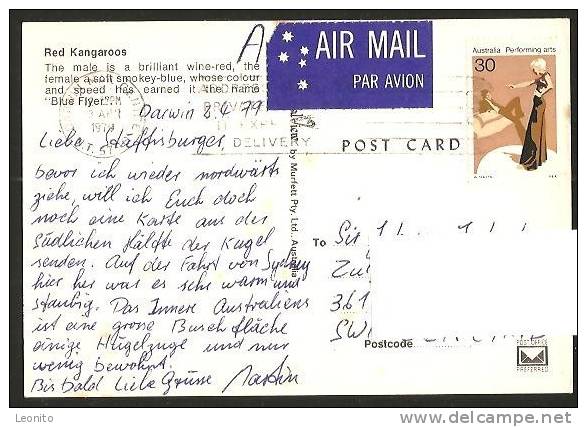 Red Kangaroos
The male is a brilliant wine-red, the
female a soft smokey-blue, whose colour
and speed has earned it the name
"Blue Flyer".
A
AIR MAIL
PAR AVION
Australia Performing arts
30
DELIVERY
Darwin 8.4 79
POST CARD
by Murfett Pty. Ltd., Australia
Liebe
bevor ich wieder nordwärts
ziehe, will ich Euch doch
noch eine Karte aus der
südlichen Hälfte der Kugel
senden. Auf der Fahrt von Sydney
hier her war es sehr warm und
staubig. Das Innere Australiens
ist eine grosse Buschfläche
einige Hügelzüge und nur
wenig bewohnt.
Bis bald Liebe Grüsse Martin
To
361
Postcode
POST OFFICE
PREFERRED
Leonito
delcampe.net